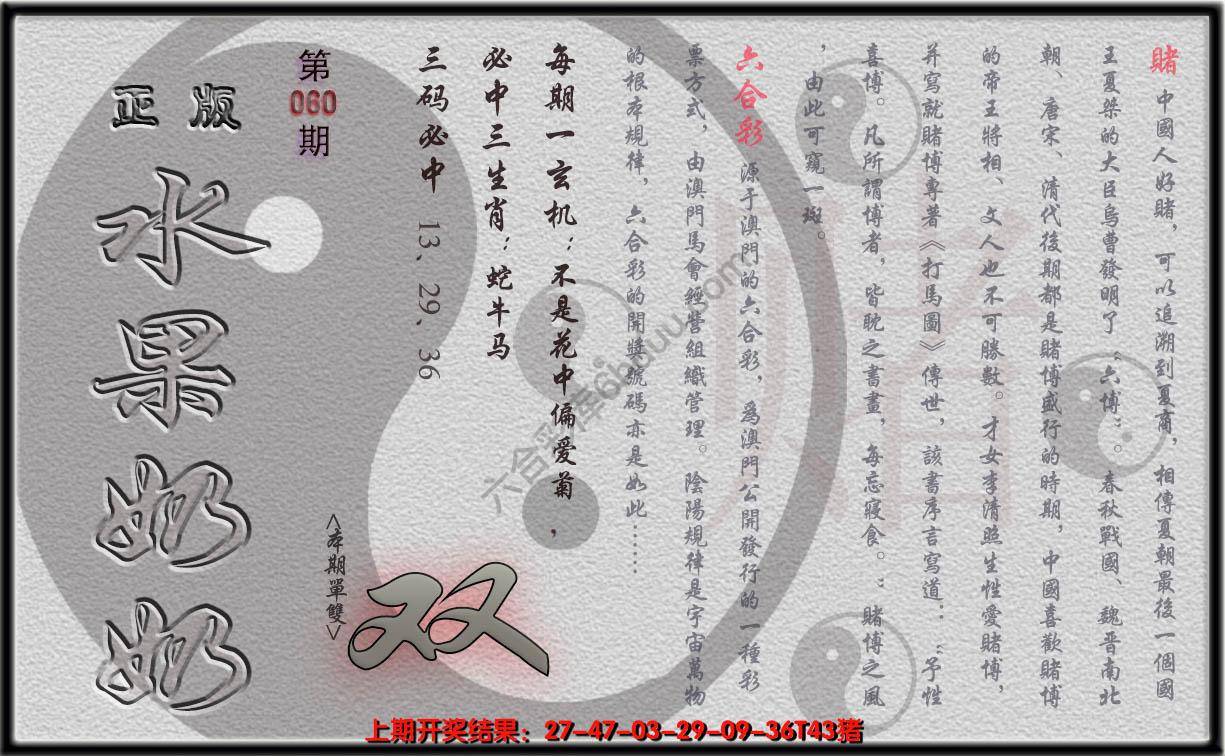 賭 中國人好賭，可以追溯到夏商，相傳夏朝最後一個國
王夏桀的大臣烏曹發明了“六博”。春秋戰國、魏晋南北
朝、唐宋、清代後期都是賭博盛行的時期，中國喜歡賭博
的帝王將相、文人也不可勝數。才女李清照生性愛賭博，
并寫就賭博專著《打馬圖》傳世，該書序言寫道：“予性
喜博。凡所謂博者，皆耽之書畫，每忘寢食。”賭博之風
，由此可窺一斑。
六合彩 源于澳門的六合彩，爲澳門公開發行的一種彩
票方式，由澳門馬會經營組織管理。陰陽規律是宇宙萬物
的根本規律，六合彩的開獎號碼亦是如此……
每期一玄机：不是花中偏爱菊，
必中三生肖：蛇牛马
三码必中 13、29、36
第
060
期
<本期單雙>
双
正版
水果奶奶
賭
上期开奖结果：27-47-03-29-09-36T43猪